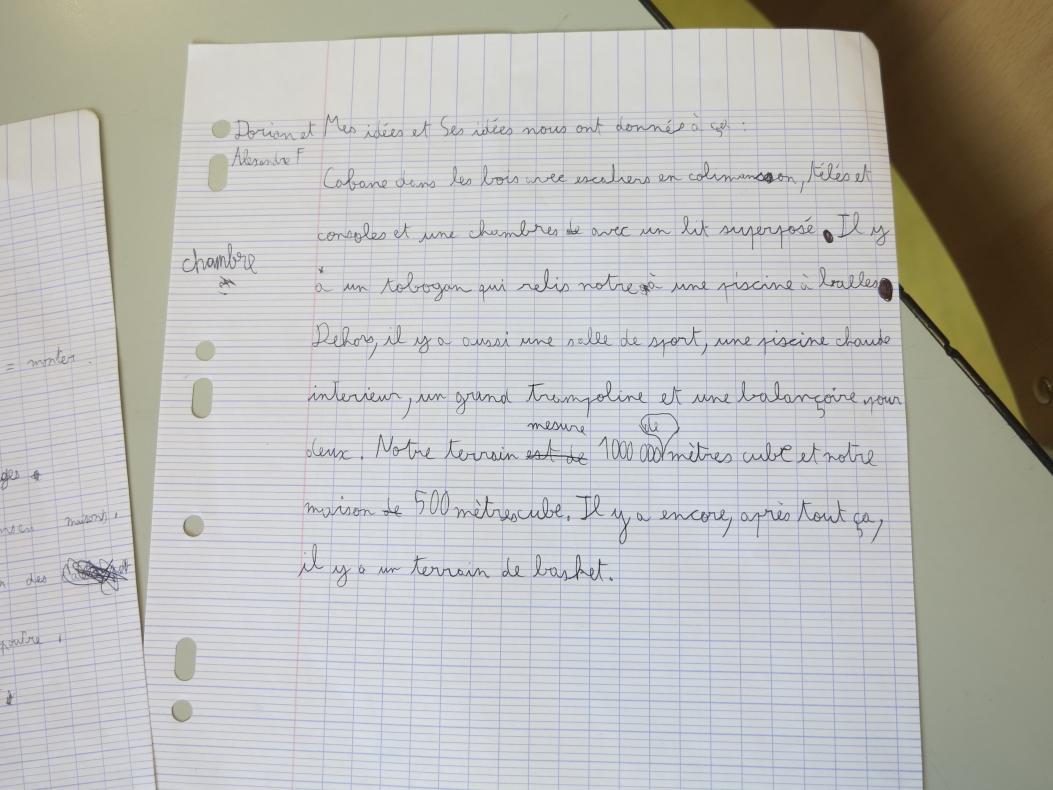 Dorian et
Alexandre F
Mes idées et Ses idées nous ont donnés à ça :
Cabane dans les bois avec escaliers en colimenson, télés et
consoles et une chambres de avec un lit superposé. Il y
chambre
*
*
à un tobogan qui relis notre à une piscine à balles
Dehors, il y a aussi une salle de sport, une piscine chaude
interieur, un grand trampoline et une balançoire pour
mesure de
deux. Notre terrain est de 1000 000 mètres cube et notre
maison de 500 mètres cube. Il y a encore, après tout ça,
il y a un terrain de basket.
= monter.
ges
maisons.
n des
poutre.